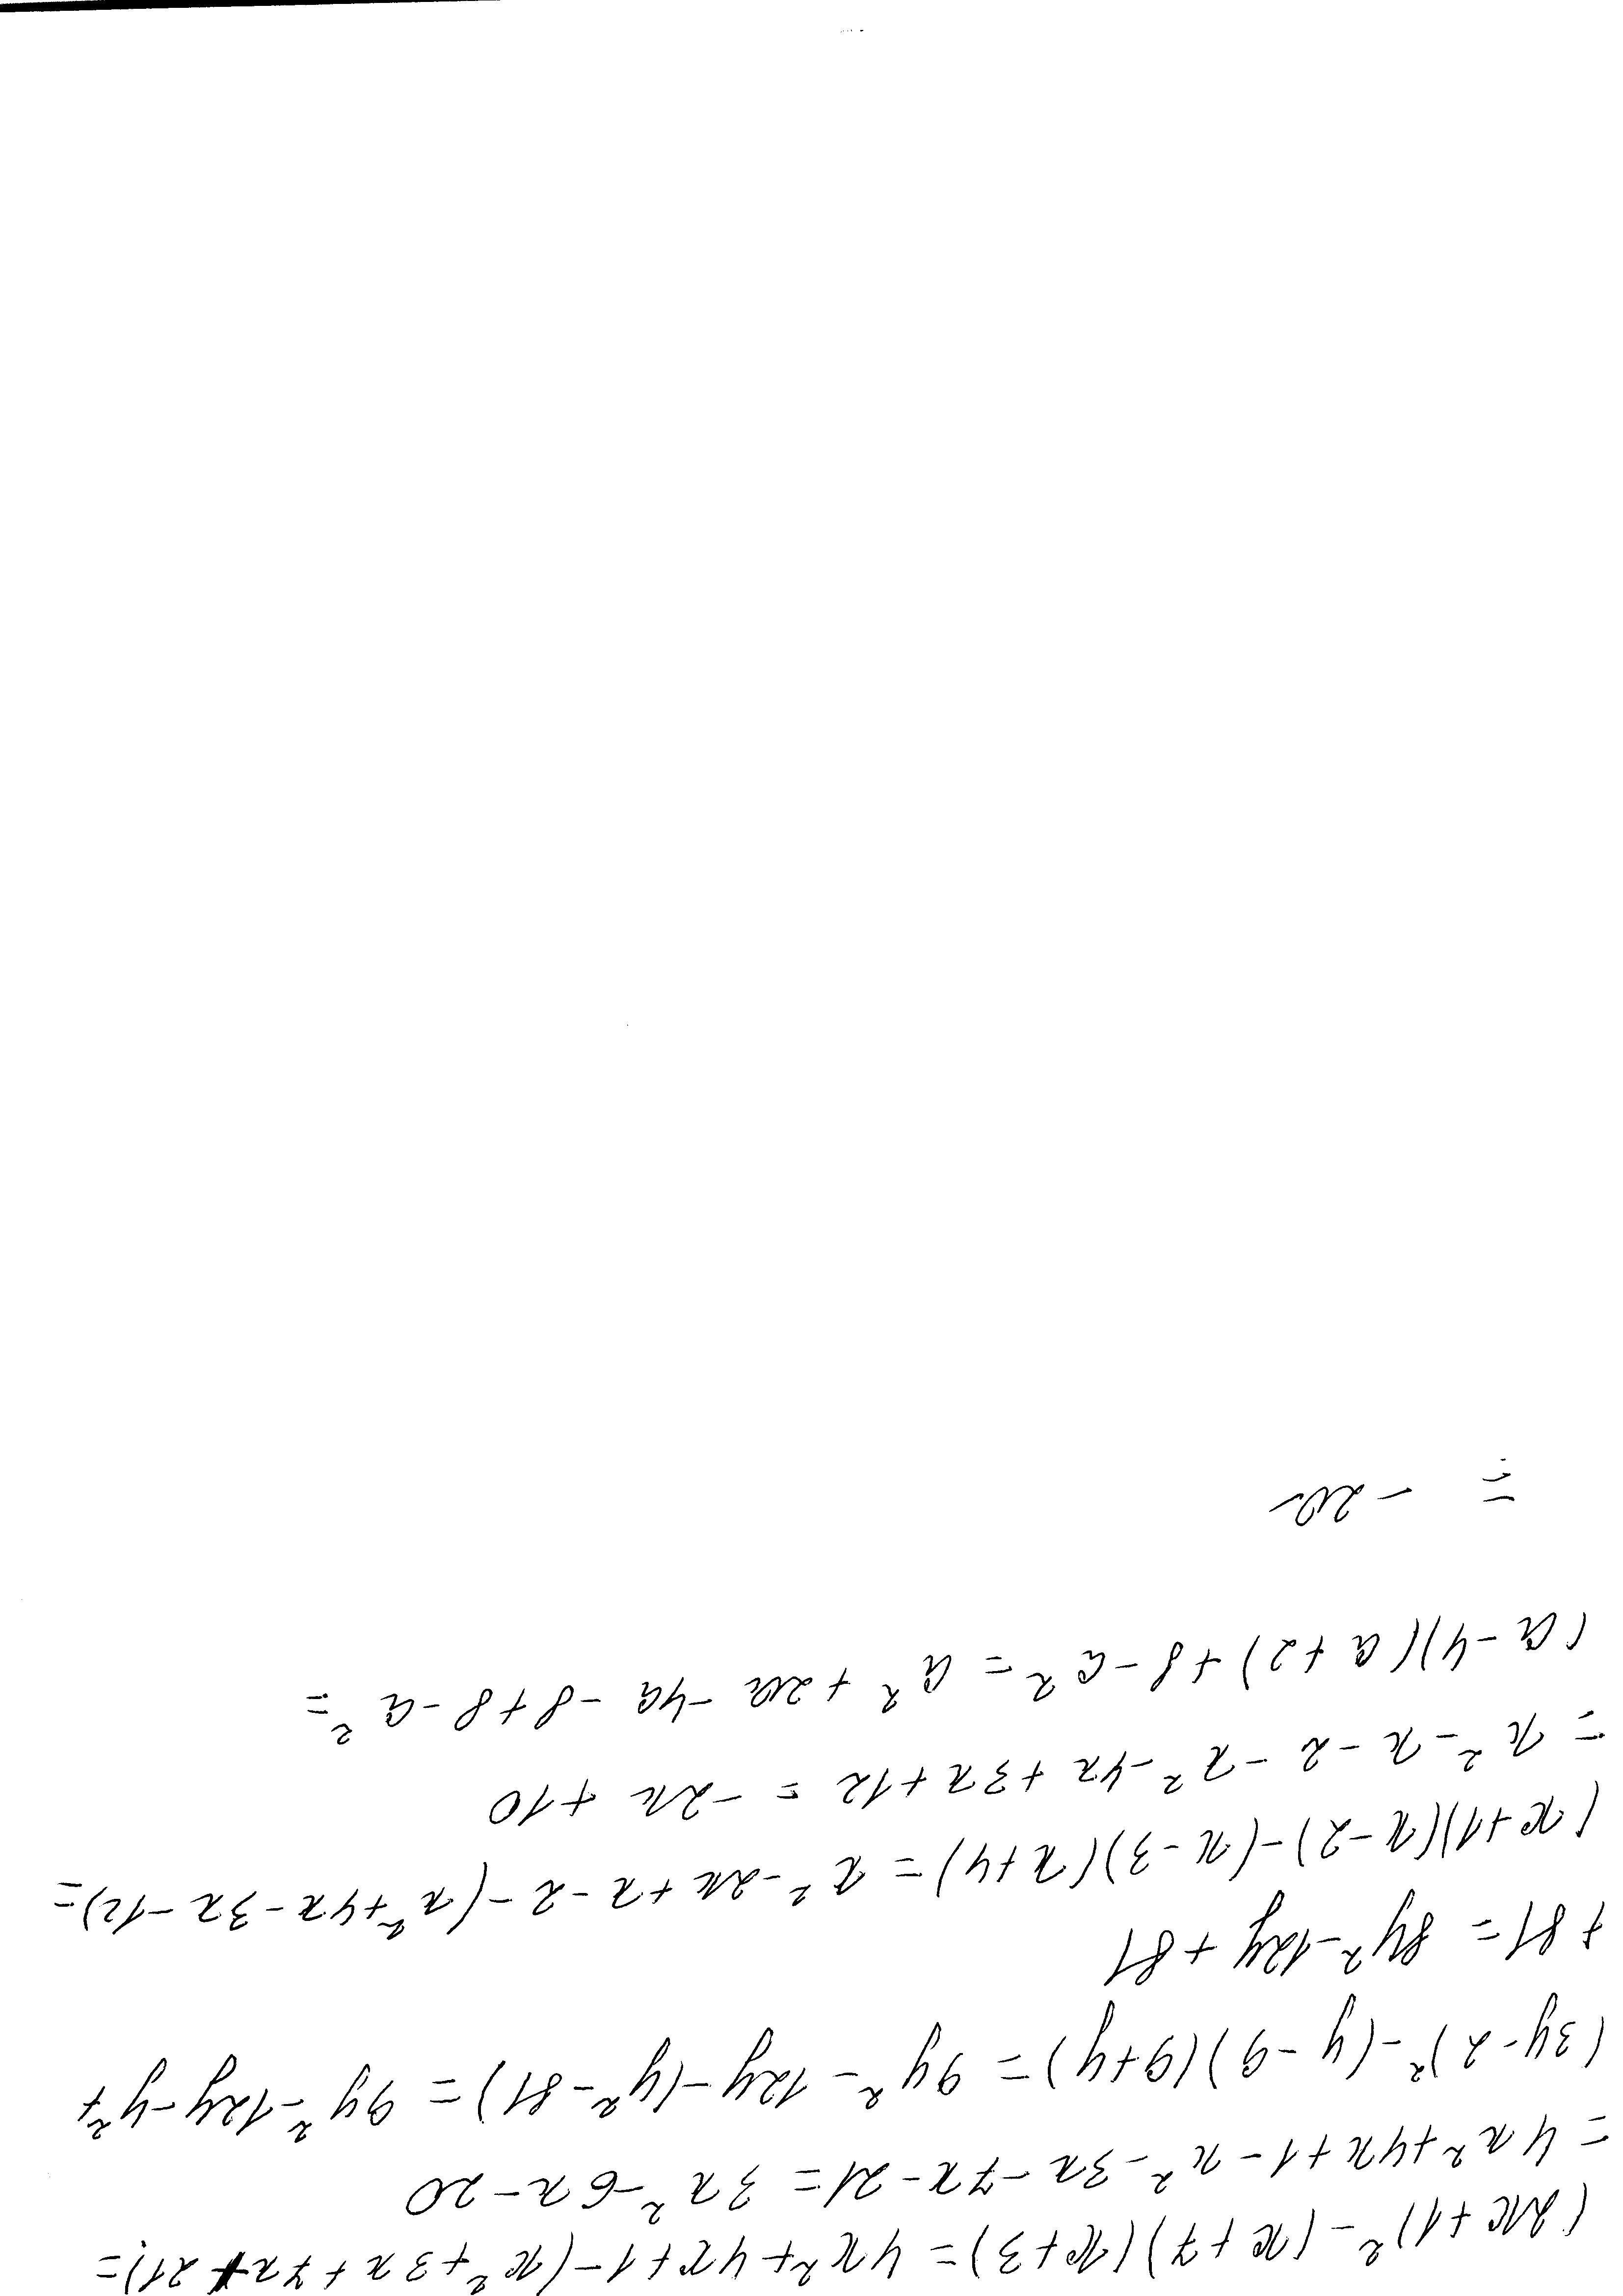 (2x+1)² - (x+7)(x+3) = 4x² + 4x + 1 - (x² + 3x + 7x + 21) =
= 4x² + 4x + 1 - x² - 3x - 7x - 21 = 3x² - 6x - 20
(3y-2)² - (y-9)(9+y) = 9y² - 12y - (y² - 81) = 9y² - 12y - y² +
+ 81 = 8y² - 12y + 81
(x+1)(x-2) - (x-3)(x+4) = x² - 2x + x - 2 - (x² + 4x - 3x - 12) =
= x² - x - 2 - x² - 4x + 3x + 12 = -2x + 10
(a-4)(a+2) + 8 - a² = a² + 2a - 4a - 8 + 8 - a² =
= -2a